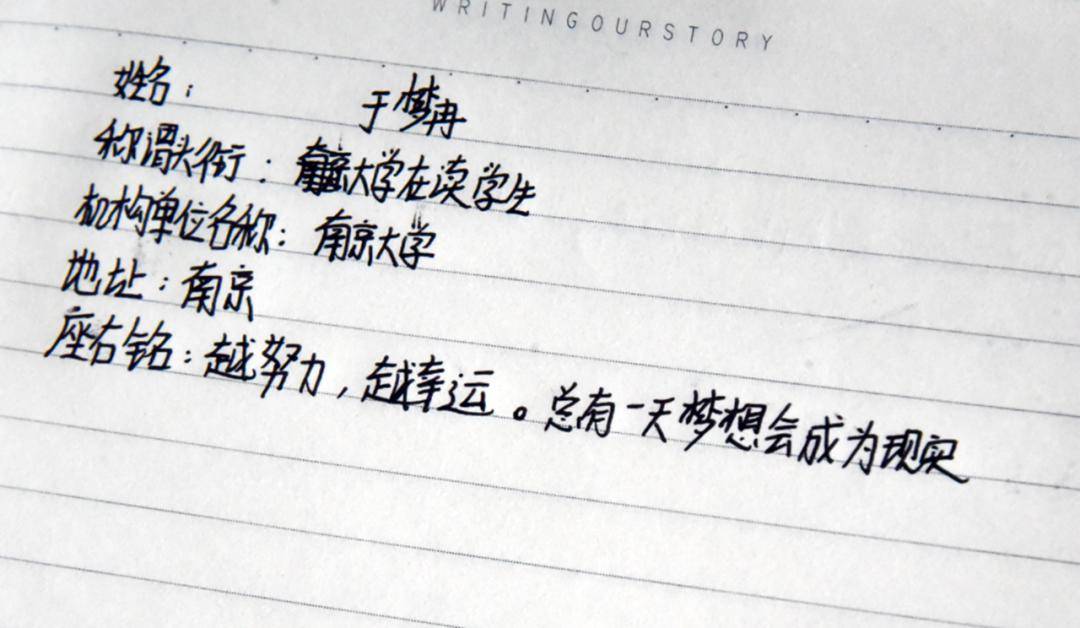 WRITINGOURSTORY
姓名： 于梦冉
称谓头衔：南京大学在读学生
机构单位名称：南京大学
地址：南京
座右铭：越努力，越幸运。总有一天梦想会成为现实